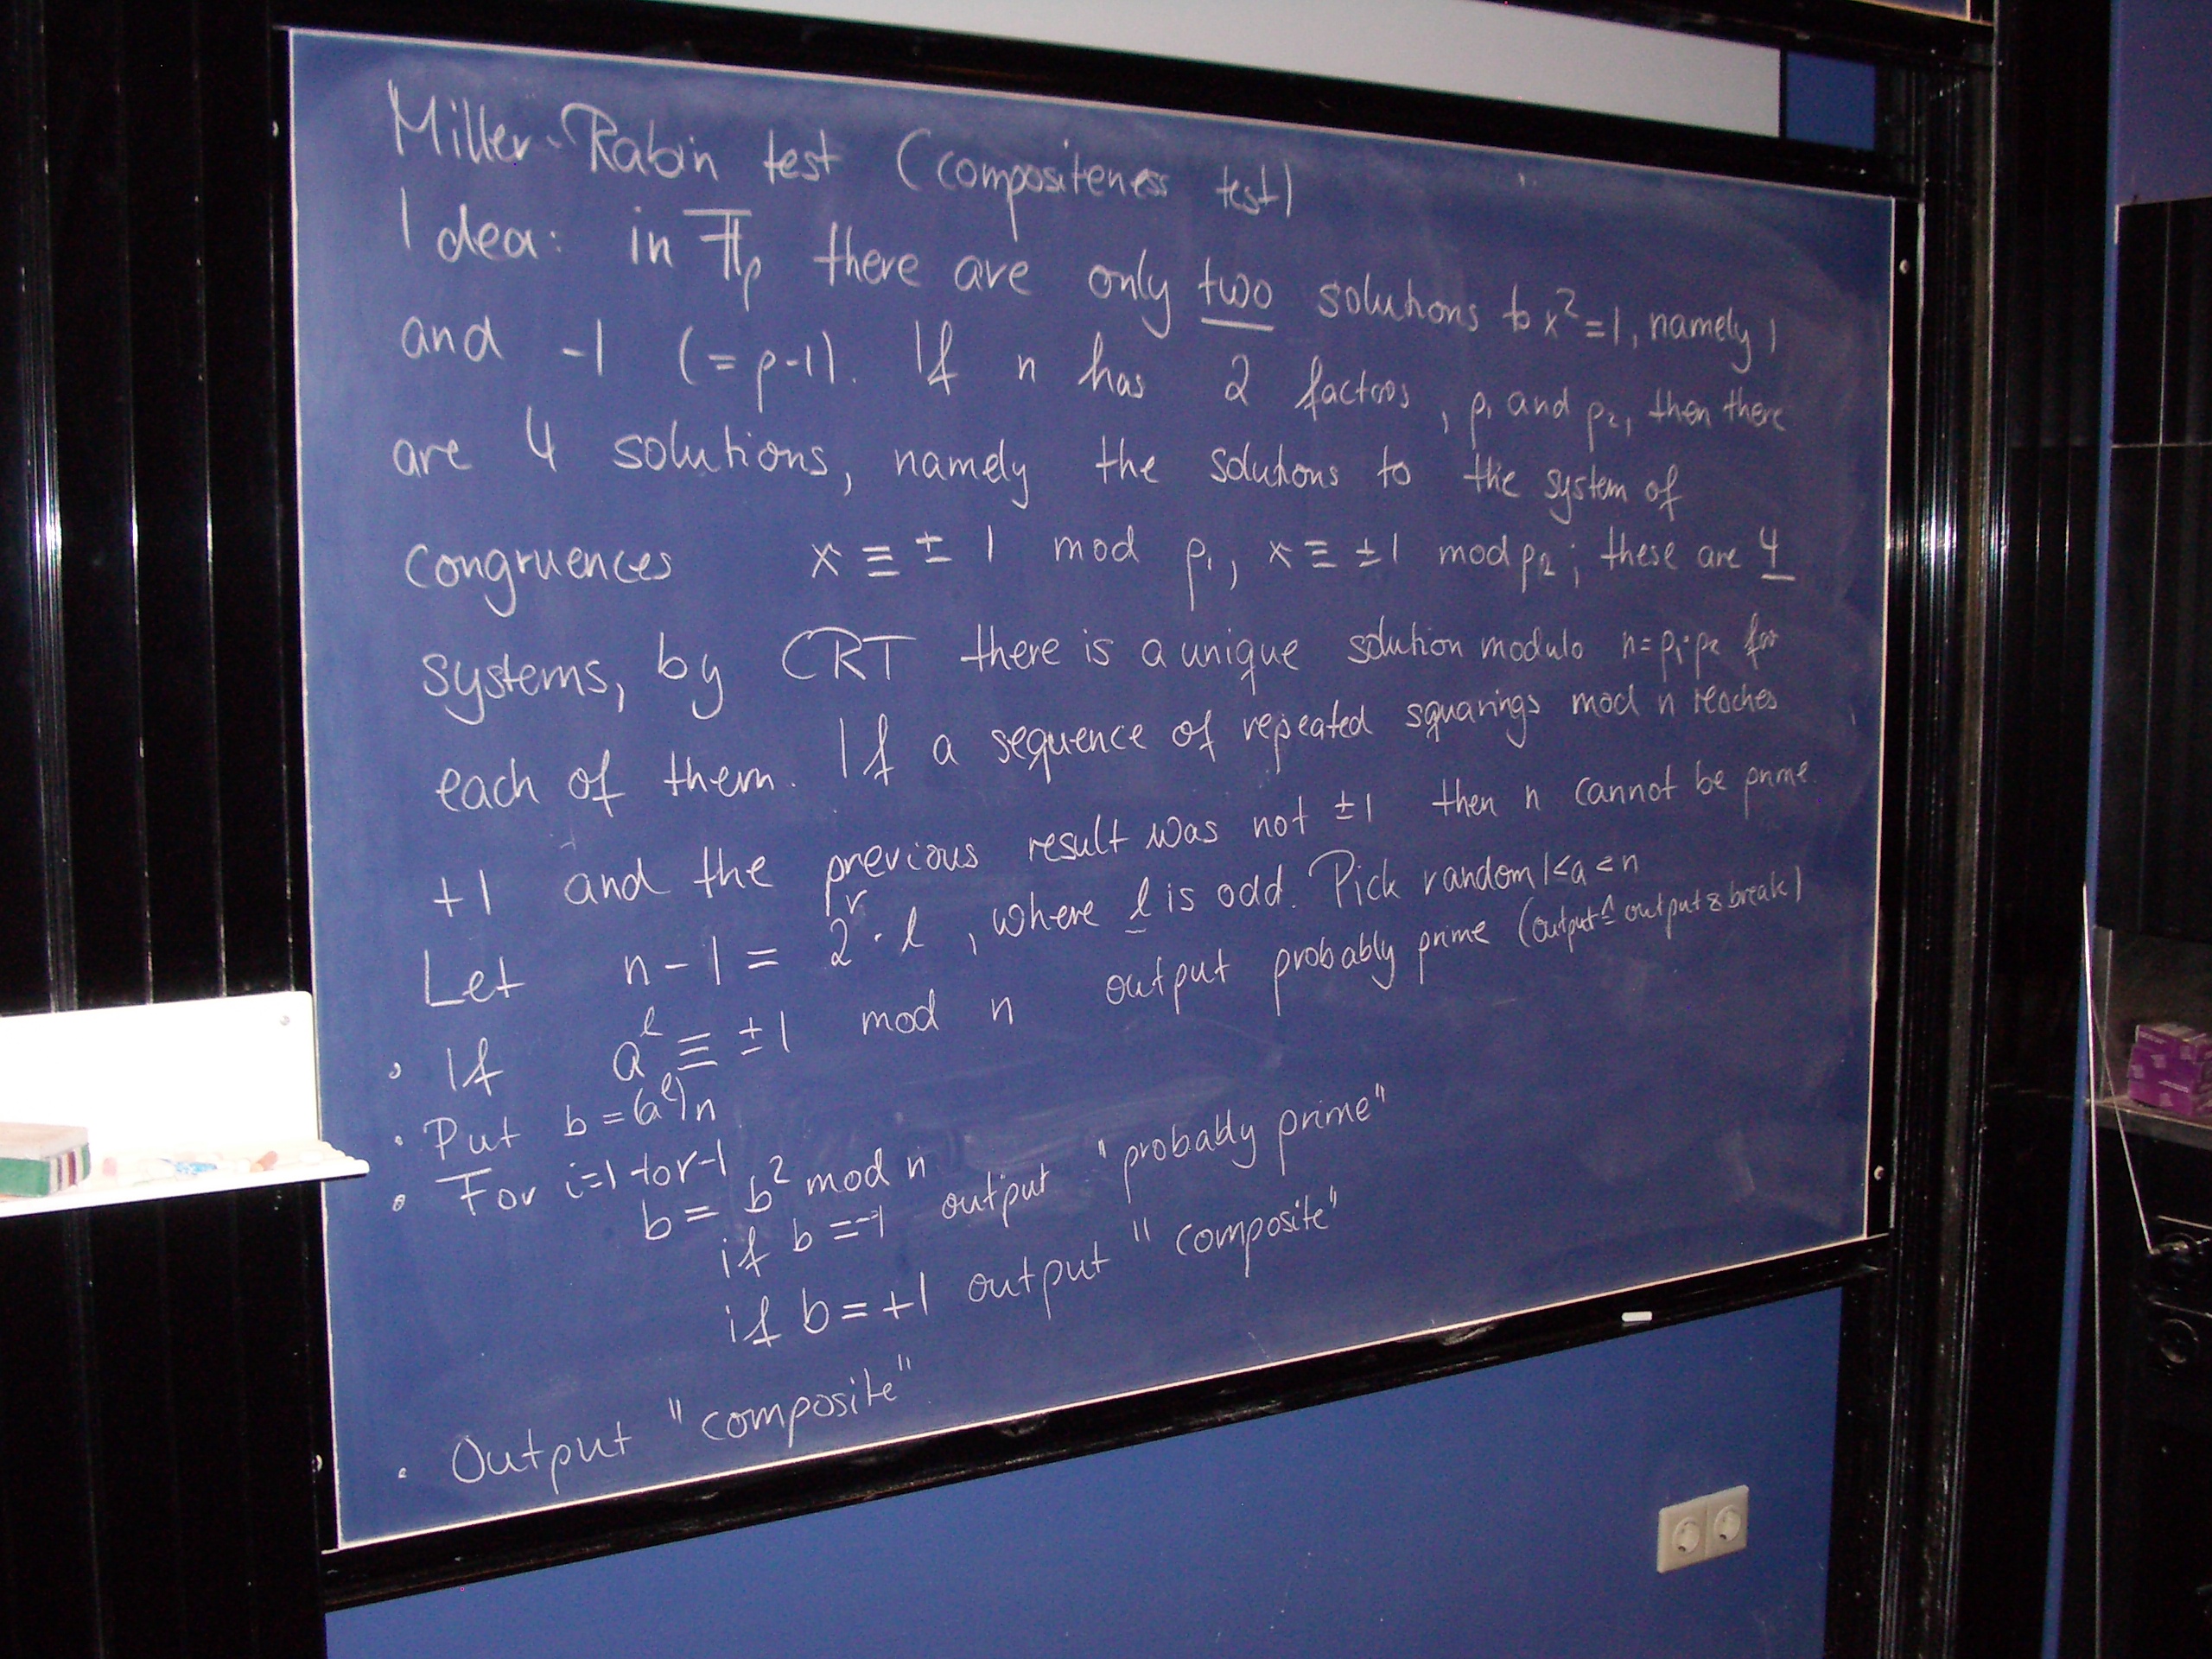 Miller-Rabin test (compositeness test)
Idea: in 𝔽p there are only two solutions to x²=1, namely 1
and -1 (=p-1). If n has 2 factors, p₁ and p₂, then there
are 4 solutions, namely the solutions to the system of
congruences x ≡ ± 1 mod p₁, x ≡ ±1 mod p₂; these are 4
systems, by CRT there is a unique solution modulo n=p₁·p₂ for
each of them. If a sequence of repeated squarings mod n reaches
+1 and the previous result was not ±1 then n cannot be prime.
Let n-1 = 2ʳ·ℓ, where ℓ is odd. Pick random 1<a<n
• If aˡ ≡ ±1 mod n output probably prime (output ≙ output & break)
• Put b = (aˡ)n
• For i=1 to r-1
b = b² mod n
if b = -1 output "probably prime"
if b = +1 output "composite"
• Output "composite"